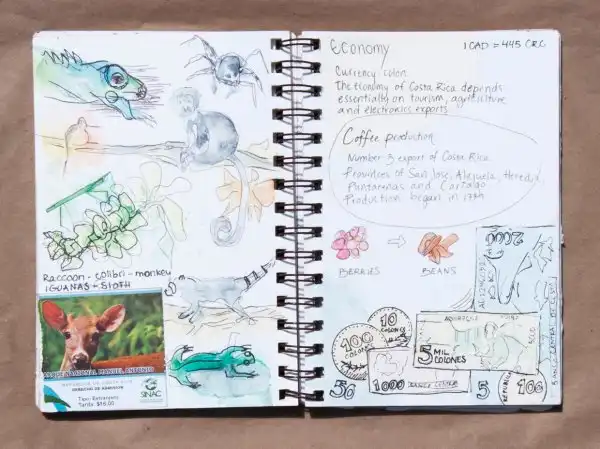 Raccoon - colibri - monkey
IGUANAS - SLOTH
PARQUE NACIONAL MANUEL ANTONIO
REPUBLICA DE COSTA RICA
DERECHO DE ADMISION
Tipo: Extranjeros
Tarifa: $16.00
SINAC
Economy
1 CAD = 445 CRC
Currency colon
The Economy of Costa Rica depends
essentially on tourism, agriculture
and electronics exports
Coffee production
Number 3 export of Costa Rica
Provinces of San Jose, Alejuela, Heredia
Puntarenas and Cartago
Production began in 1779
BERRIES
BEANS
2000
10
COLONES
100
COLONES
5 MIL
COLONES
50
1000
5
100